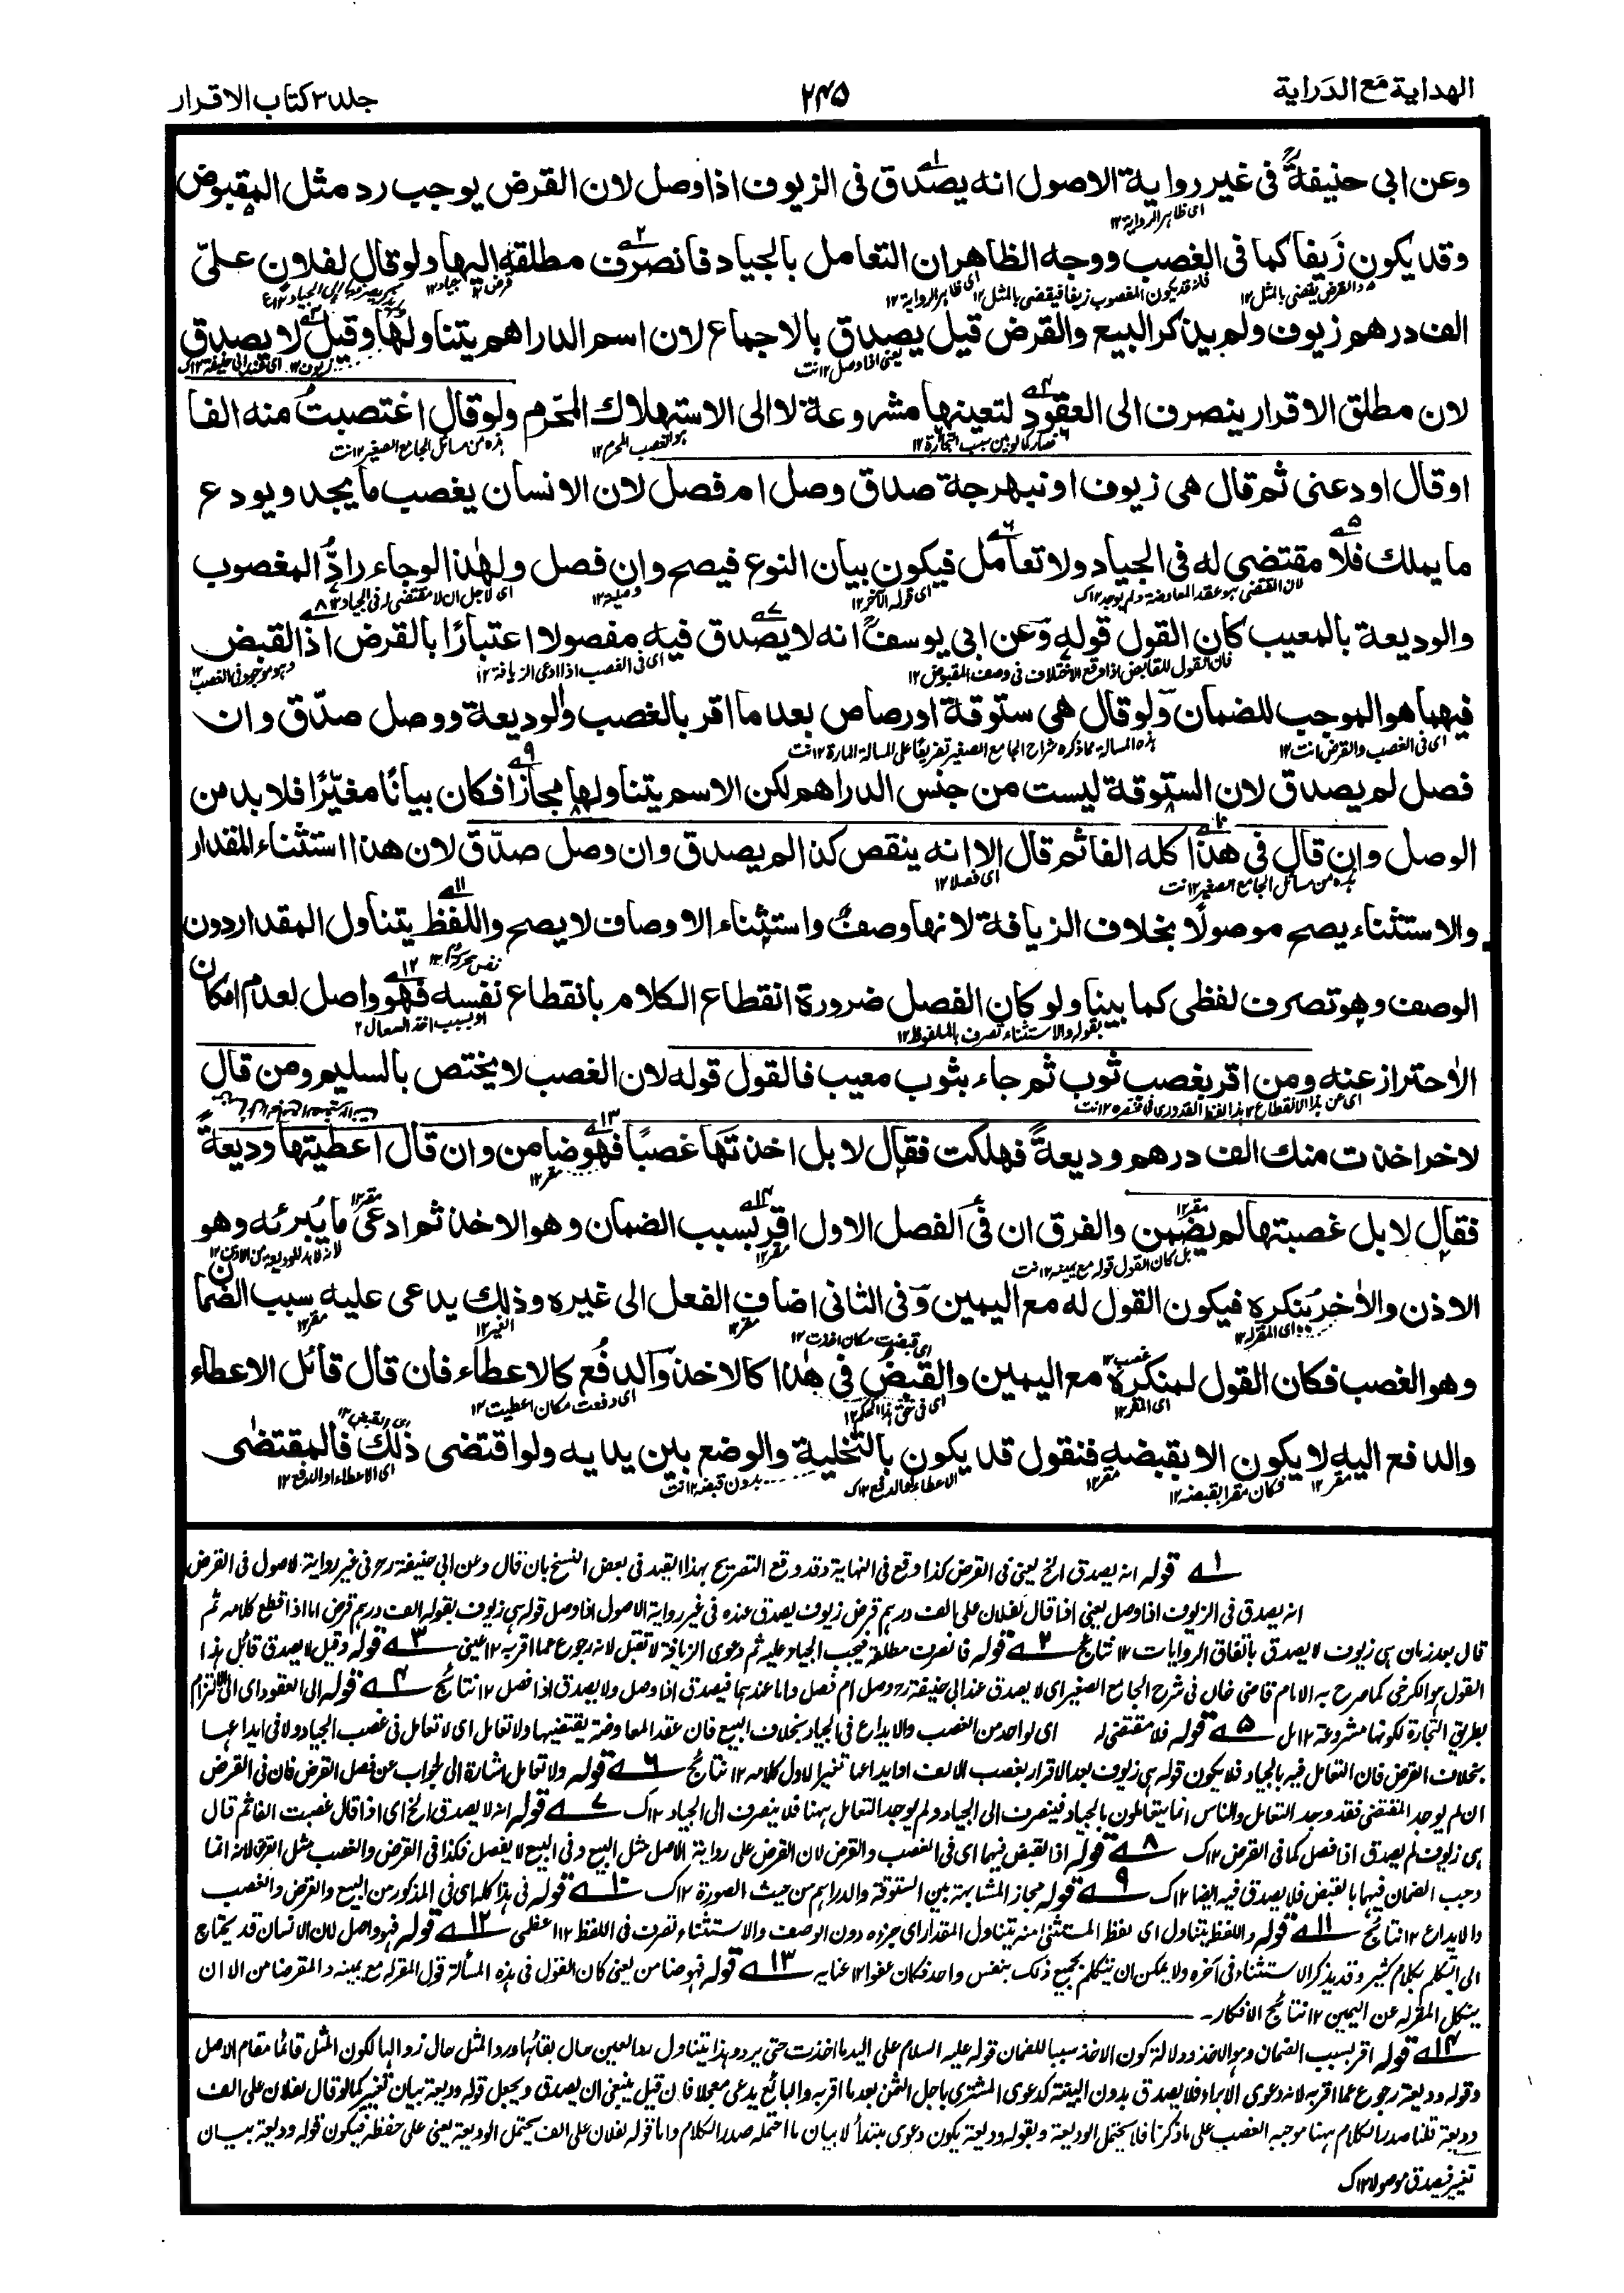 الهداية مع الدراية
٢٤٥
جلد ٣ كتاب الاقرار
وعن ابي حنيفة في غير رواية الاصول انه يصدق في الزيوف اذا وصل لان القرض يوجب رد مثل المقبوض
اى ظاهر الرواية ١٢
وقد يكون زيفا كما في الغصب ووجه الظاهر ان التعامل بالجياد فانصرف مطلقه اليها ولو قال لفلان علىّ
الف درهم زيوف ولم يذكر البيع والقرض قيل يصدق بالاجماع لان اسم الدراهم يتناولها وقيل لا يصدق
يعنى اذا وصل ١٢ نت
لان مطلق الاقرار ينصرف الى العقود لتعينها مشروعة لا الى الاستهلاك المحرم ولو قال اغتصبت منه الفا
هذه من مسائل الجامع الصغير ١٢ نت
او قال اودعنى ثم قال هى زيوف او نبهرجة صدق وصل ام فصل لان الانسان يغصب ما يجد ويودع
ما يملك فلا مقتضى له في الجياد ولا تعامل فيكون بيان النوع فيصح وان فصل ولهذا لو جاء رادّ المغصوب
لان المقتضى هو عقد المعاوضة ولم يوجد ١٢ ك
والوديعة بالمعيب كان القول قوله وعن ابي يوسف انه لا يصدق فيه مفصولا اعتبارًا بالقرض اذ القبض
فان القول للقابض اذا وقع الاختلاف في وصف المقبوض ١٢
اى في الغصب اذا ادعى الزيافة ١٢
وهو موجود في الغصب ١٢
فيهما هو الموجب للضمان ولو قال هى ستوقة او رصاص بعد ما اقر بالغصب والوديعة ووصل صدّق وان
اى في الغصب والقرض ١٢ نت
هذه المسألة مما ذكره شراح الجامع الصغير تفريعًا على المسألة المارة ١٢ نت
فصل لم يصدق لان الستوقة ليست من جنس الدراهم لكن الاسم يتناولها مجازًا فكان بيانًا مغيّرًا فلا بد من
الوصل وان قال في هذا كله الفا ثم قال الا انه ينقص كذا لم يصدق وان وصل صدّق لان هذا استثناء المقدار
هذه من مسائل الجامع الصغير ١٢ نت
اى فصلا ١٢
والاستثناء يصح موصولًا بخلاف الزيافة لانها وصف واستثناء الاوصاف لا يصح واللفظ يتناول المقدار دون
الوصف وهو تصرف لفظى كما بينا ولو كان الفصل ضرورة انقطاع الكلام بانقطاع نفسه فهو واصل لعدم امكان
بقوله والاستثناء تصرف بالملفوظ ١٢
الاحتراز عنه ومن اقر بغصب ثوب ثم جاء بثوب معيب فالقول قوله لان الغصب لا يختص بالسليم ومن قال
لاخر اخذت منك الف درهم وديعةً فهلكت فقال لا بل اخذتها غصبًا فهو ضامن وان قال اعطيتها وديعةً
مقر ١٢
فقال لا بل غصبتها لم يضمن والفرق ان في الفصل الاول اقر بسبب الضمان وهو الاخذ ثم ادعى ما يُبرئه وهو
بل كان القول قوله مع يمينه ١٢ نت
الاذن والاخر ينكره فيكون القول له مع اليمين وفي الثانى اضاف الفعل الى غيره وذلك يدعى عليه سبب الضمان
اى المقر له ١٢
مقر ١٢
الغير ١٢
مقر ١٢
اى قبضت مكان اخذت ١٢
وهو الغصب فكان القول لمنكره مع اليمين والقبض في هذا كالاخذ والدفع كالاعطاء فان قال قائل الاعطاء
اى المقر ١٢
اى في حق هذا الحكم ١٢
اى دفعت مكان اعطيت ١٢
والدفع اليه لا يكون الا بقبضه فنقول قد يكون بالتخلية والوضع بين يديه ولو اقتضى ذلك فالمقتضى
مقر ١٢
فكان مقرا بقبضه ١٢
مقر ١٢
بدون قبضه ١٢ نت
اى الاعطاء او الدفع ١٢
١ قوله انه يصدق الخ يعنى في القرض كذا وقع في النهاية وقد وقع التصريح بهذا القيد في بعض النسخ بان قال وعن ابي حنيفة رح في غير رواية الاصول في القرض
انه يصدق في الزيوف اذا وصل يعنى اذا قال لفلان على الف درهم قرض زيوف يصدق عنده في غير رواية الاصول اذا وصل قوله هى زيوف بقوله الف درهم قرض اما اذا قطع كلامه ثم
قال بعد زمان هى زيوف لا يصدق باتفاق الروايات ١٢ نتائج ٢ قوله فانصرف مطلقه فيجب الجياد عليه ثم دعوى الزيافة لا تقبل لانه رجوع عما اقر به ١٢ عينى ٣ قوله وقيل لا يصدق قائل هذا
القول هو الكرخى كما صرح به الامام قاضى خان في شرح الجامع الصغير اى لا يصدق عند ابي حنيفة رح وصل ام فصل واما عندهما فيصدق اذا وصل ولا يصدق اذا فصل ١٢ نتائج ٤ قوله الى العقود اى الى الالتزام
بطريق التجارة لكونها مشروعة ١٢ مل ٥ قوله فلا مقتضى له اى لواحد من الغصب والايداع في الجياد بخلاف البيع فان عقد المعاوضة يقتضيها ولا تعامل اى لا تعامل في غصب الجياد ولا في ايداعها
بخلاف القرض فان التعامل فيه بالجياد فلا يكون قوله هى زيوف بعد الاقرار بغصب الالف او ايداعها تغييرا لاول كلامه ١٢ نتائج ٦ قوله ولا تعامل اشارة الى الجواب عن فصل القرض فان في القرض
ان لم يوجد المقتضى فقد وجد التعامل والناس انما يتعاملون بالجياد فينصرف الى الجياد ولم يوجد التعامل ههنا فلا ينصرف الى الجياد ١٢ ك ٧ قوله انه لا يصدق الخ اى اذا قال غصبت الفا ثم قال
هى زيوف لم يصدق اذا فصل كما في القرض ١٢ ك ٨ قوله اذ القبض فيهما اى في الغصب والقرض لان القرض على رواية الاصل مثل البيع وفي البيع لا يفصل فكذا في القرض والغصب مثل القرض لانه انما
وجب الضمان فيهما بالقبض فلا يصدق فيه ايضا ١٢ ك ٩ قوله مجازا لمشابهة بين الستوقة والدراهم من حيث الصورة ١٢ ك ١٠ قوله في هذا كله اى في المذكور من البيع والقرض والغصب
والايداع ١٢ نتائج ١١ قوله واللفظ يتناول اى لفظ المستثنى منه يتناول المقدار اى جزءه دون الوصف والاستثناء تصرف في اللفظ ١٢ ١٢ قوله فهو واصل لان الانسان قد يحتاج
الى التكلم بكلام كثير وقد يذكر الاستثناء في آخره ولا يمكن ان يتكلم بجميع ذلك بنفس واحد فكان عفوا ١٢ عناية ١٣ قوله فهو ضامن يعنى كان القول في هذه المسألة قول المقر له مع يمينه والمقر ضامن الا ان
ينكل المقر له عن اليمين ١٢ نتائج الافكار
١٤ قوله اقر بسبب الضمان وهو الاخذ ودلالة كون الاخذ سببا للضمان قوله عليه السلام على اليد ما اخذت حتى يرد وهذا يتناول رد العين حال بقائها ورد المثل حال زوالها لكون المثل قائما مقام الاصل
وقوله وديعة رجوع عما اقر به لانه دعوى الابراء فلا يصدق بدون البينة كدعوى المشترى باجل الثمن بعد ما اقر به والبائع يدعى معجلا فان قيل ينبغى ان يصدق ويجعل قوله وديعة بيان تغيير كما لو قال لفلان على الف
وديعة قلنا صدر الكلام ههنا موجبه الغصب على ما ذكرنا فلا يحتمل الوديعة وبقوله وديعة يكون دعوى مبتدأ لا بيان ما احتمله صدر الكلام واما قوله لفلان على الف يحتمل الوديعة يعنى على حفظه فيكون قوله وديعة بيان
تغيير فيصدق موصولا ١٢ ك